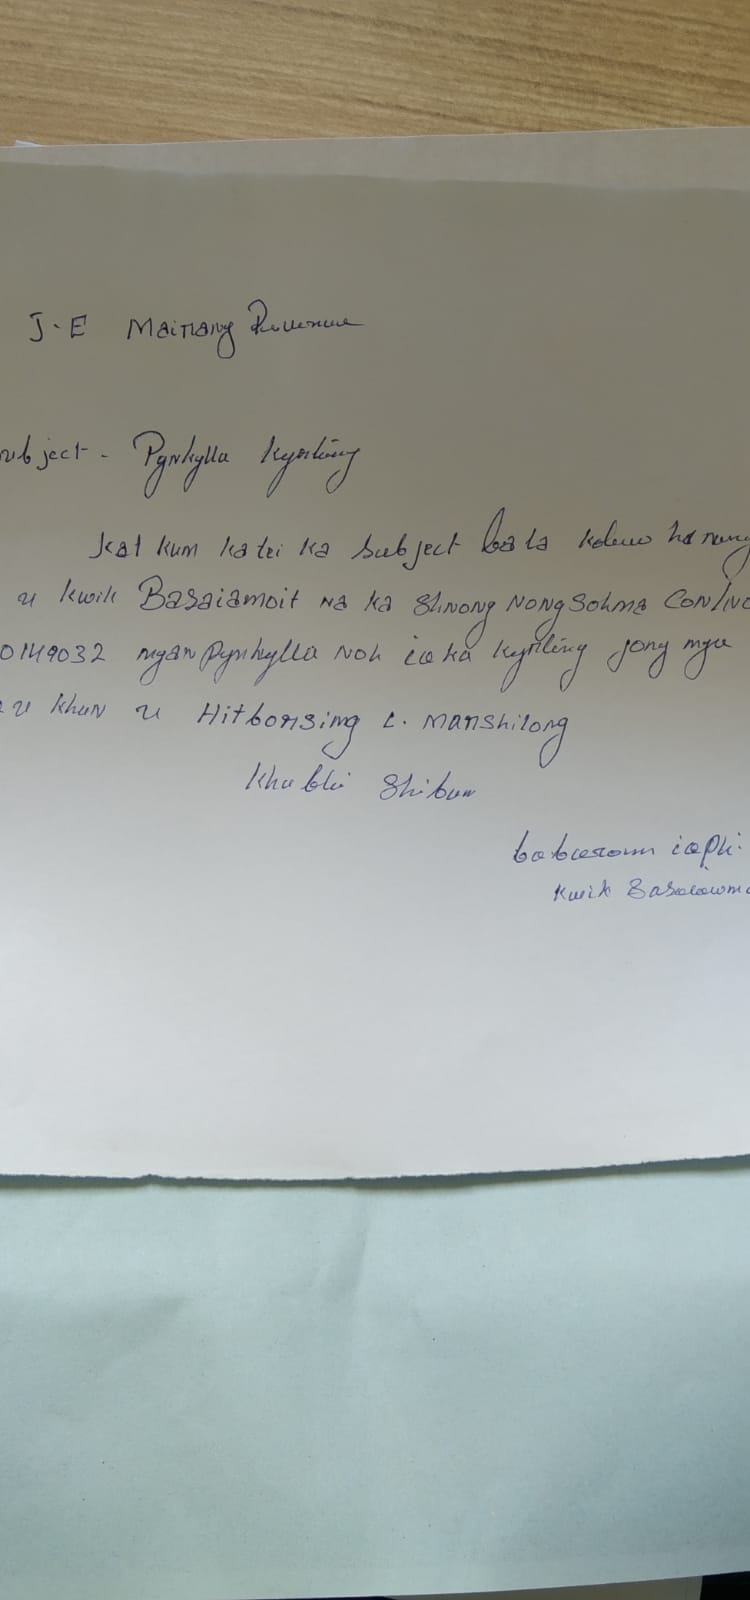 J.E Mairang Revenue
ubject - Pynkylla kyrteng
kat kum katei ka subject ba la kdew ha neng
u kwik Basaiamoit na ka shnong Nongsohma Con/No
0149032 ngan pynkylla noh ia ka kyrteng jong nga
u khun u Hitborsing L. Marshilong
Khublei Shibun
kwik